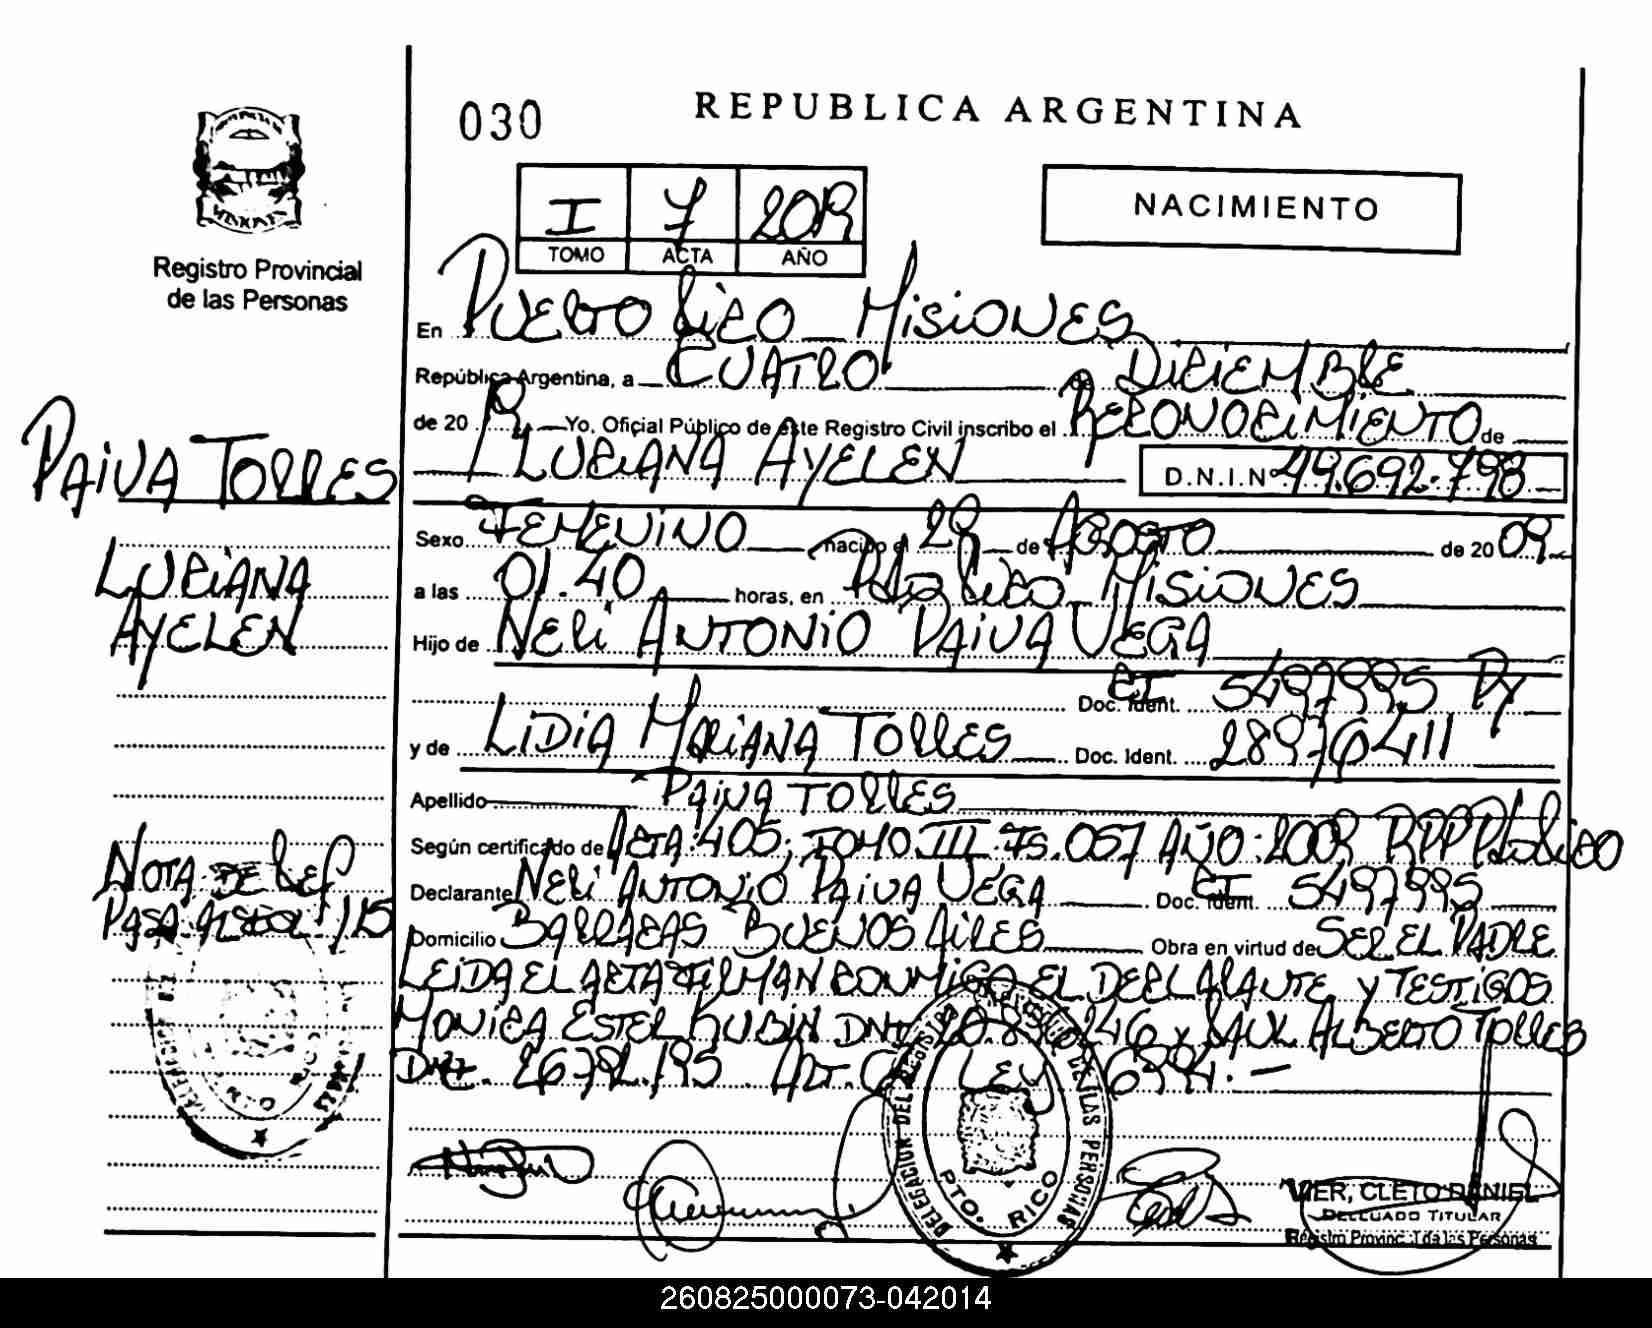 030
REPUBLICA ARGENTINA
I 7
TOMO ACTA AÑO
NACIMIENTO
Registro Provincial
de las Personas
En PUERTO RICO MISIONES
República Argentina, a CUATRO de DICIEMBRE
de 20 Yo, Oficial Público de este Registro Civil inscribo el RECONOCIMIENTO de
LUCIANA AYELEN D.N.I.Nº 49.692.798
PAIVA TORRES
LUCIANA
AYELEN
Sexo FEMENINO nacido el de AGOSTO de 20 09
a las 01.40 horas, en Pto RICO MISIONES
Hijo de NERI ANTONIO PAIVA VEGA
Doc. Ident. CI 5497995 Py
y de LIDIA MARIANA TORRES Doc. Ident. 28976411
Apellido PAIVA TORRES
Según certificado de ACTA: 405; TOMO III FS. 057 AÑO: 2009 RPP Pto Rico
Declarante NERI ANTONIO PAIVA VEGA Doc. Ident. CI 5497995
Domicilio BARRACAS BUENOS AIRES Obra en virtud de SER EL PADRE
NOTA DE REF
PASA /15
LEIDA EL ACTA FIRMAN CONMIGO EL DECLARANTE Y TESTIGOS
MONICA ESTER KUBIN DNI 246 y SAUL ALBERTO TORRES
DNI. ART. LEY
DELEGACION DEL REGISTRO DE LAS PERSONAS
PTO. RICO
VIER, CLETO DANIEL
DELEGADO TITULAR
Registro Provincial de las Personas
260825000073-042014